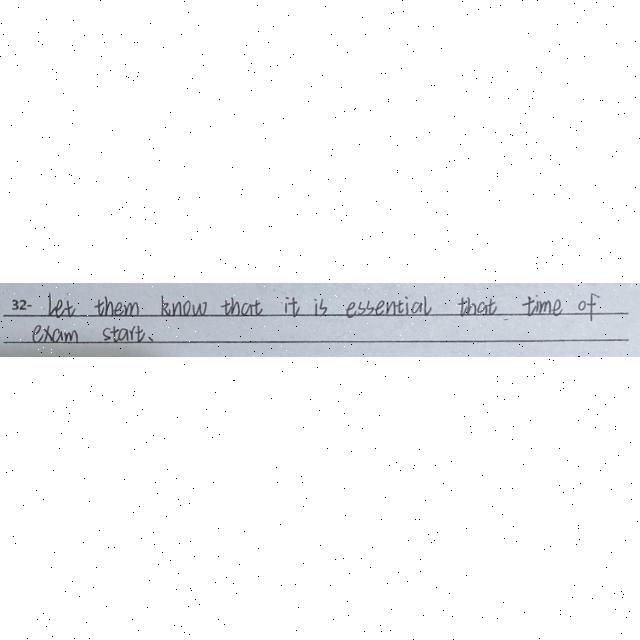 32- Let them know that it is essential that time of
exam start.